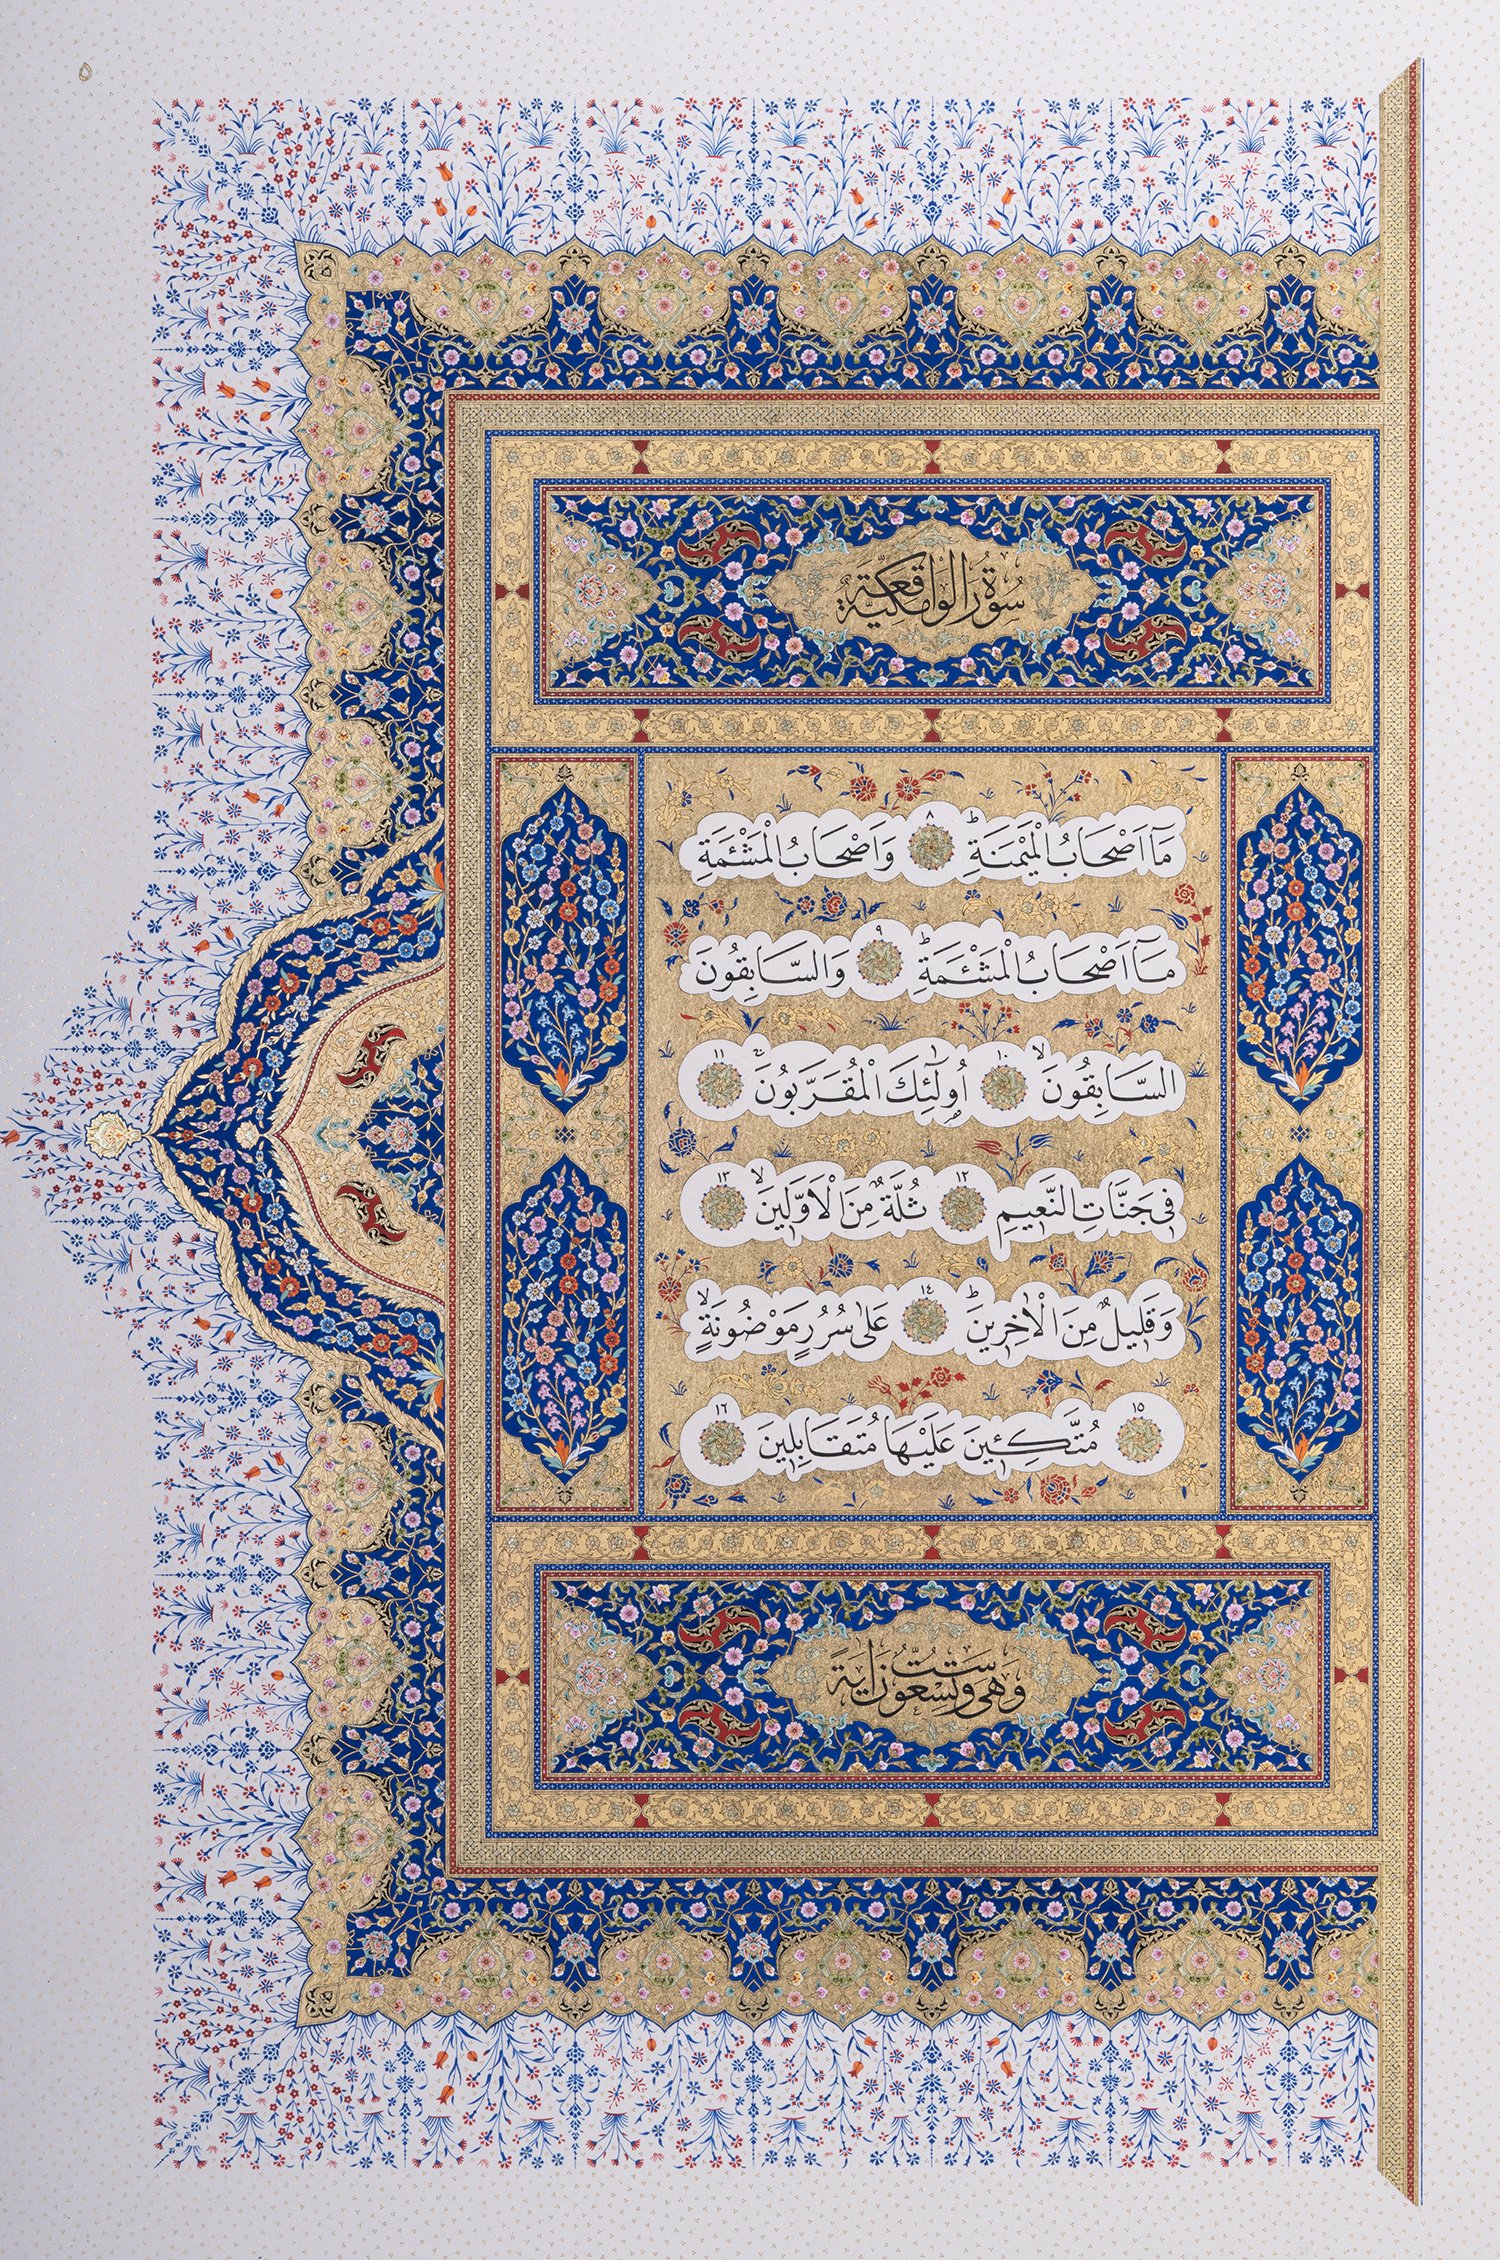 سُورَةُ الْوَاقِعَةِ مَكِّيَّةٌ
مَٓا اَصْحَابُ الْمَيْمَنَةِؕ ٨ وَاَصْحَابُ الْمَشْـَٔمَةِ
مَٓا اَصْحَابُ الْمَشْـَٔمَةِؕ ٩ وَالسَّابِقُونَ
السَّابِقُونَۙ ١٠ اُو۬لٰٓئِكَ الْمُقَرَّبُونَۚ ١١
ف۪ى جَنَّاتِ النَّع۪يمِ ١٢ ثُلَّةٌ مِنَ الْاَوَّل۪ينَۙ ١٣
وَقَل۪يلٌ مِنَ الْاٰخِر۪ينَؕ ١٤ عَلٰى سُرُرٍ مَوْضُونَةٍۙ
١٥ مُتَّكِـ۪ٔينَ عَلَيْهَا مُتَقَابِل۪ينَ ١٦
وَهِىَ سِتٌّ وَتِسْعُونَ اٰيَةً